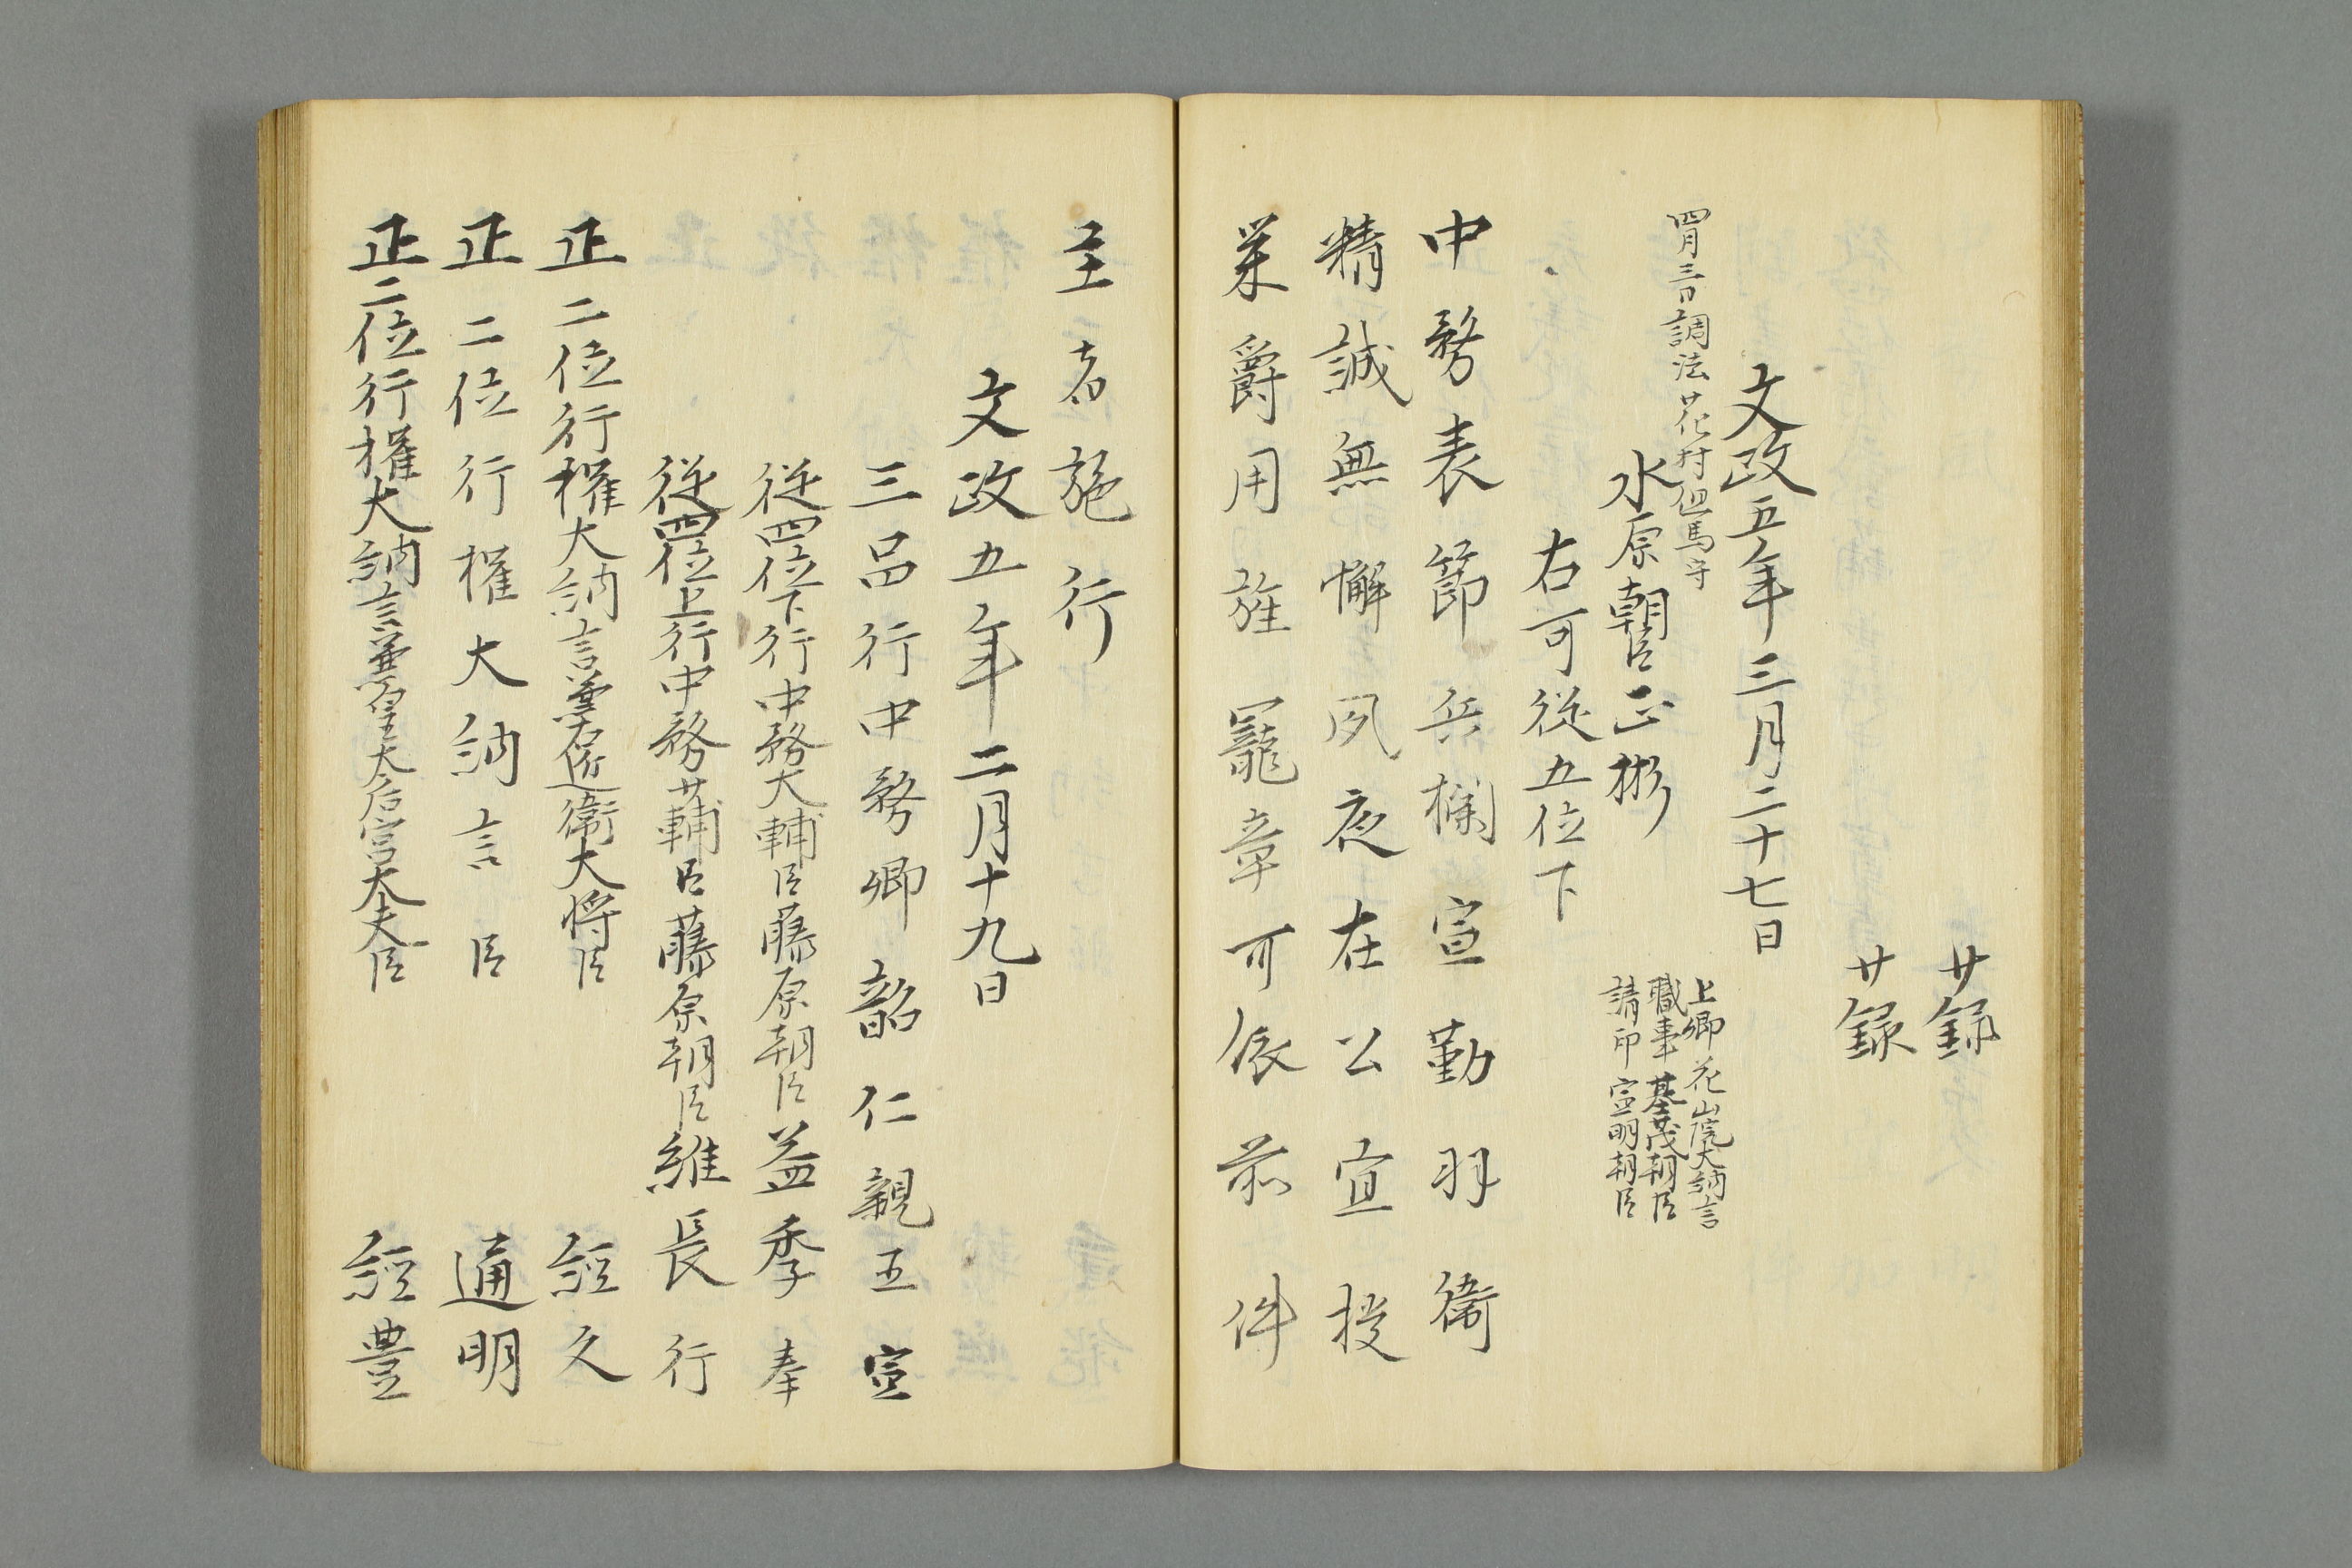 廿録
廿録
文政五年三月二十七日
上卿花山院大納言
職事基茂朝臣
請印宣明朝臣
四月三日調法花村但馬守
水原朝臣正彬
右可従五位下
中務表節兵欄宣勤羽衛
精誠無懈夙夜在公宜授
栄爵用旌寵章可依前件
主者施行
文政五年二月十九日
三品行中務卿韶仁親王宣
従四位下行中務大輔臣藤原朝臣益季奉
従四位上行中務廿輔臣藤原朝臣維長行
正二位行権大納言兼右近衛大将臣 経久
正二位行権大納言臣 通明
正二位行権大納言兼皇太后宮大夫臣 経豊